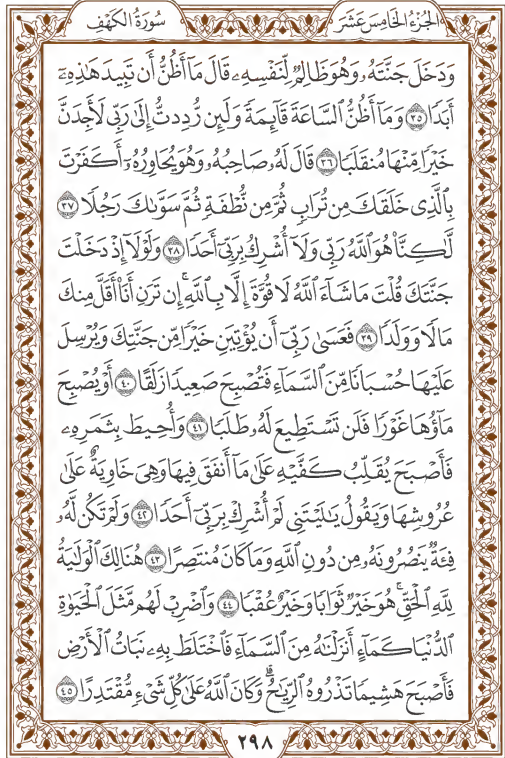 الجُزءُ الخَامِسَ عَشَرَ
سُورَةُ الكَهْفِ
وَدَخَلَ جَنَّتَهُۥ وَهُوَ ظَالِمٌ لِّنَفْسِهِۦ قَالَ مَآ أَظُنُّ أَن تَبِيدَ هَٰذِهِۦٓ
أَبَدًا ٣٥ وَمَآ أَظُنُّ ٱلسَّاعَةَ قَآئِمَةً وَلَئِن رُّدِدتُّ إِلَىٰ رَبِّى لَأَجِدَنَّ
خَيْرًا مِّنْهَا مُنقَلَبًا ٣٦ قَالَ لَهُۥ صَاحِبُهُۥ وَهُوَ يُحَاوِرُهُۥٓ أَكَفَرْتَ
بِٱلَّذِى خَلَقَكَ مِن تُرَابٍ ثُمَّ مِن نُّطْفَةٍ ثُمَّ سَوَّىٰكَ رَجُلًا ٣٧
لَّٰكِنَّا۠ هُوَ ٱللَّهُ رَبِّى وَلَآ أُشْرِكُ بِرَبِّىٓ أَحَدًا ٣٨ وَلَوْلَآ إِذْ دَخَلْتَ
جَنَّتَكَ قُلْتَ مَا شَآءَ ٱللَّهُ لَا قُوَّةَ إِلَّا بِٱللَّهِ ۚ إِن تَرَنِ أَنَا۠ أَقَلَّ مِنكَ
مَالًا وَوَلَدًا ٣٩ فَعَسَىٰ رَبِّىٓ أَن يُؤْتِيَنِ خَيْرًا مِّن جَنَّتِكَ وَيُرْسِلَ
عَلَيْهَا حُسْبَانًا مِّنَ ٱلسَّمَآءِ فَتُصْبِحَ صَعِيدًا زَلَقًا ٤٠ أَوْ يُصْبِحَ
مَآؤُهَا غَوْرًا فَلَن تَسْتَطِيعَ لَهُۥ طَلَبًا ٤١ وَأُحِيطَ بِثَمَرِهِۦ
فَأَصْبَحَ يُقَلِّبُ كَفَّيْهِ عَلَىٰ مَآ أَنفَقَ فِيهَا وَهِىَ خَاوِيَةٌ عَلَىٰ
عُرُوشِهَا وَيَقُولُ يَٰلَيْتَنِى لَمْ أُشْرِكْ بِرَبِّىٓ أَحَدًا ٤٢ وَلَمْ تَكُن لَّهُۥ
فِئَةٌ يَنصُرُونَهُۥ مِن دُونِ ٱللَّهِ وَمَا كَانَ مُنتَصِرًا ٤٣ هُنَالِكَ ٱلْوَلَٰيَةُ
لِلَّهِ ٱلْحَقِّ ۚ هُوَ خَيْرٌ ثَوَابًا وَخَيْرٌ عُقْبًا ٤٤ وَٱضْرِبْ لَهُم مَّثَلَ ٱلْحَيَوٰةِ
ٱلدُّنْيَا كَمَآءٍ أَنزَلْنَٰهُ مِنَ ٱلسَّمَآءِ فَٱخْتَلَطَ بِهِۦ نَبَاتُ ٱلْأَرْضِ
فَأَصْبَحَ هَشِيمًا تَذْرُوهُ ٱلرِّيَٰحُ ۗ وَكَانَ ٱللَّهُ عَلَىٰ كُلِّ شَىْءٍ مُّقْتَدِرًا ٤٥
٢٩٨